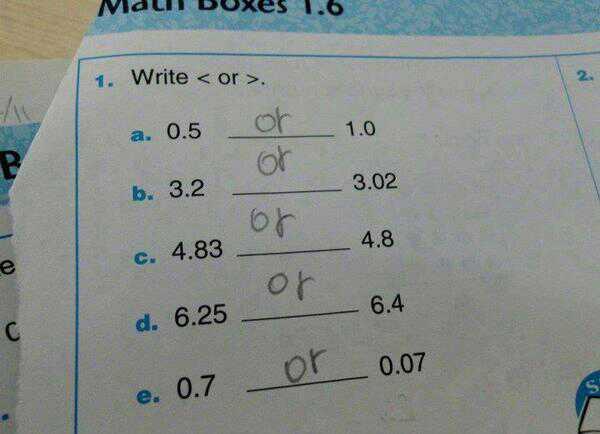 Math Boxes 1.6
1. Write < or >.
2.
a. 0.5 or 1.0
b. 3.2 or 3.02
c. 4.83 or 4.8
d. 6.25 or 6.4
e. 0.7 or 0.07
B
e
C
S